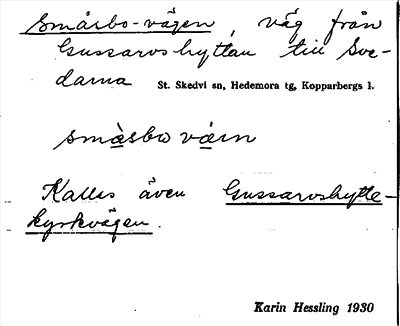 Smårbo-vägen, väg från
Gussarvshyttan till Sve-
darna St. Skedvi sn, Hedemora tg, Kopparbergs l.
smàsbo väın
Kallas även Gussarvshytte-
kyrkvägen.
Karin Hessling 1930